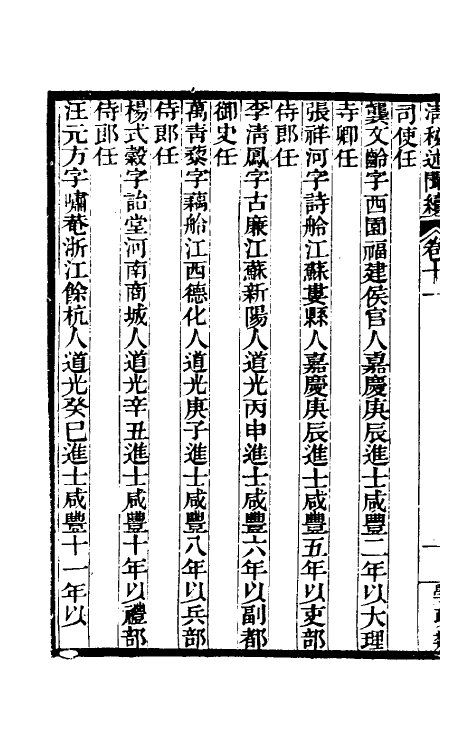 清秘述聞續 卷十一 一 學政類
司使任
龔文齡字西園福建侯官人嘉慶庚辰進士咸豐二年以大理
寺卿任
張祥河字詩舲江蘇婁縣人嘉慶庚辰進士咸豐五年以吏部
侍郎任
李清鳳字古廉江蘇新陽人道光丙申進士咸豐六年以副都
御史任
萬青藜字藕舲江西德化人道光庚子進士咸豐八年以兵部
侍郎任
楊式穀字詒堂河南商城人道光辛丑進士咸豐十年以禮部
侍郎任
汪元方字嘯菴浙江餘杭人道光癸巳進士咸豐十一年以